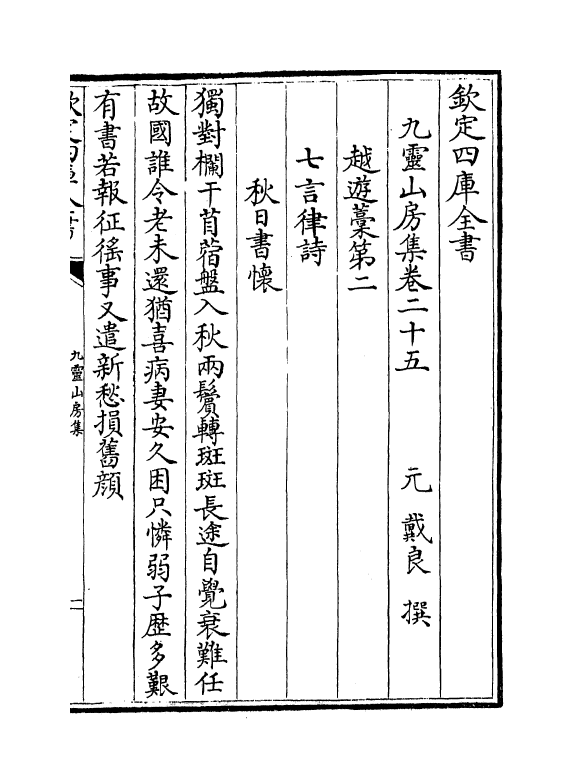 欽定四庫全書
九靈山房集卷二十五 元 戴良 撰
越遊藁第二
七言律詩
秋日書懷
獨對欄干苜蓿盤入秋兩鬢轉斑斑長途自覺衰難任
故國誰令老未還猶喜病妻安久困只憐弱子歴多艱
有書若報征徭事又遣新愁損舊顔
九靈山房集